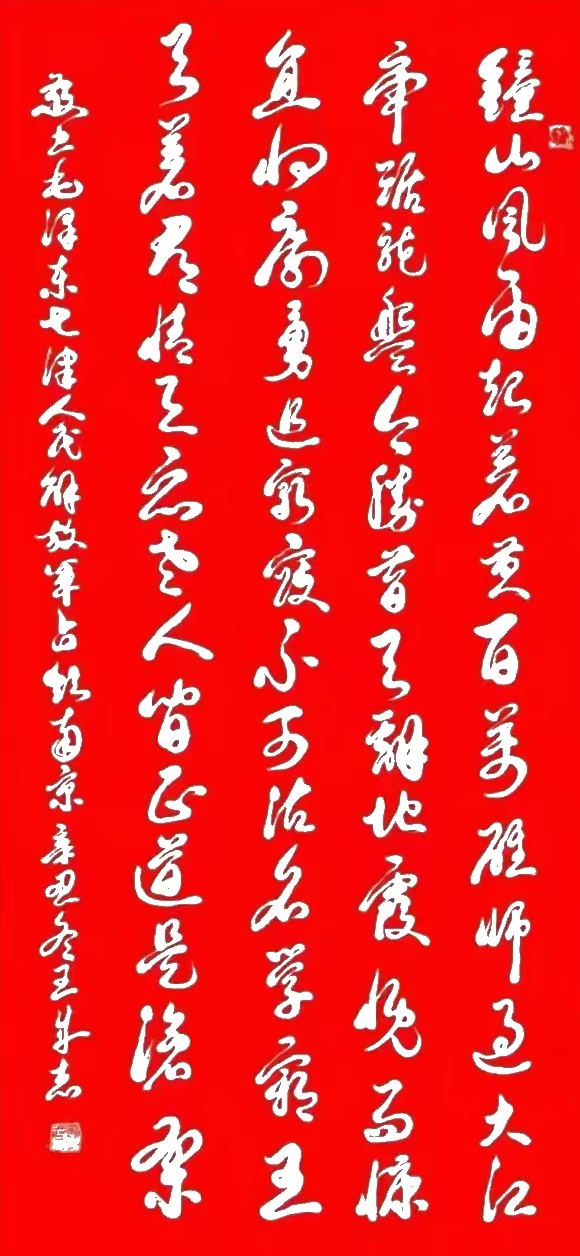 鐘山風雨起蒼黃百萬雄師過大江
虎踞龍盤今勝昔天翻地覆慨而慷
宜將剩勇追窮寇不可沽名學霸王
天若有情天亦老人間正道是滄桑
敬书毛泽东七律人民解放军占领南京辛丑冬王志